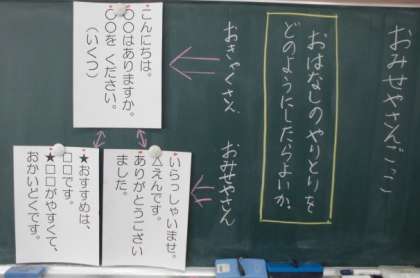 おみせやさんごっこ
おはなしのやりとりを
どのようにしたらよいか。
おきゃくさん
おみせやさん
こんにちは。
〇〇はありますか。
〇〇を ください。
(いくつ)
いらっしゃいませ。
△えんです。
ありがとうござい
ました。
★おすすめは、
□□です。
★□□がやすくて、
おかいどくです。